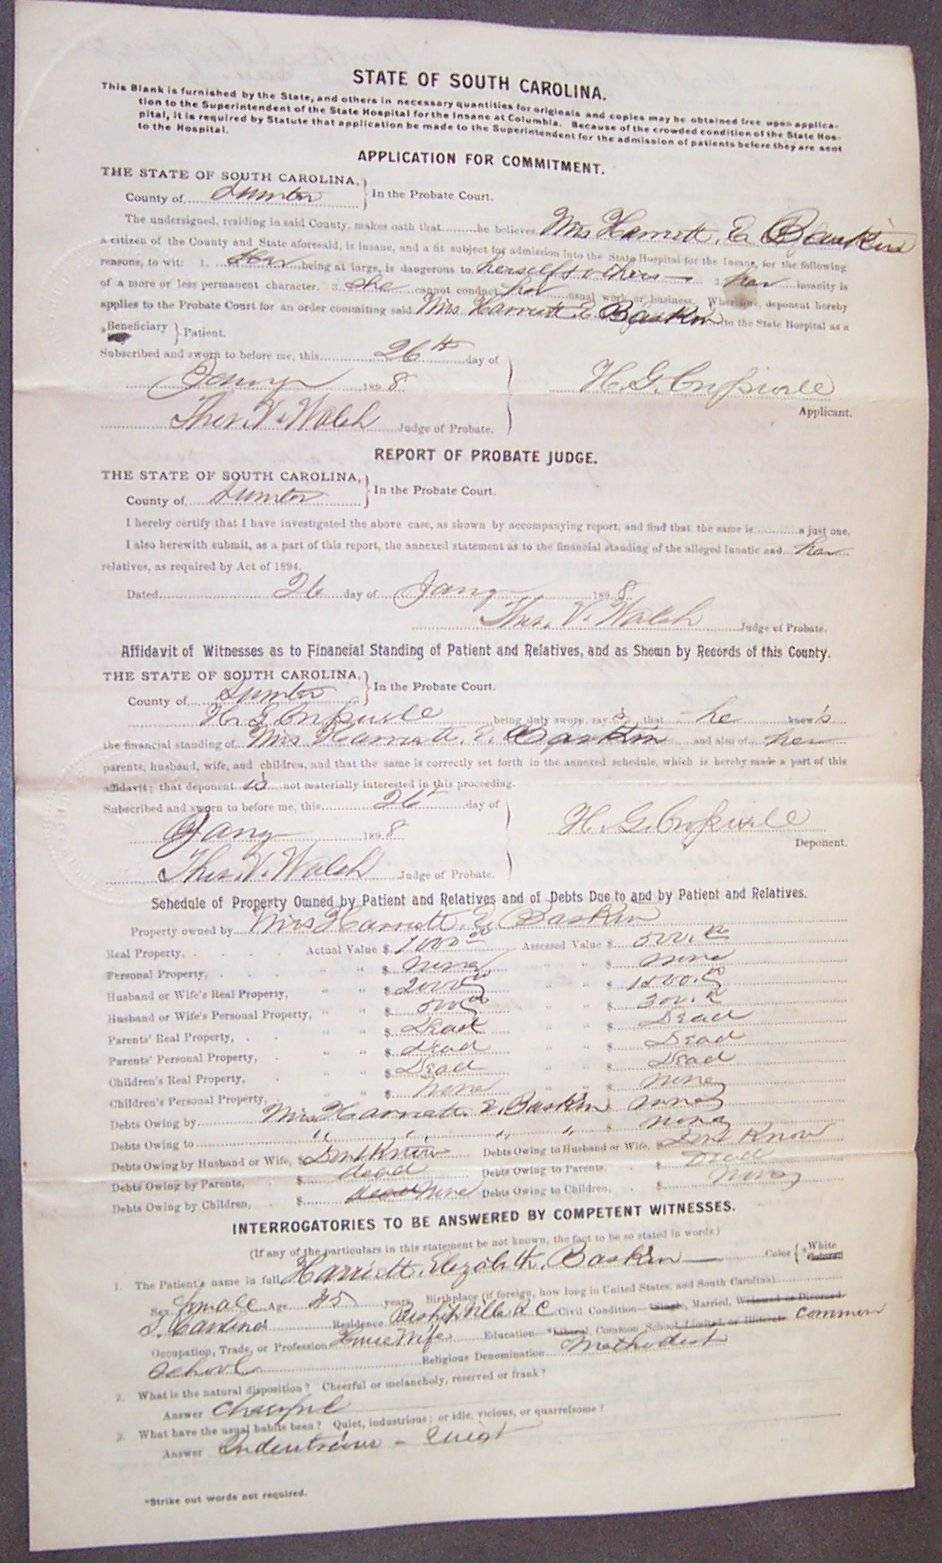 STATE OF SOUTH CAROLINA.
This Blank is furnished by the State, and others in necessary quantities for originals and copies may be obtained free upon applica-
tion to the Superintendent of the State Hospital for the Insane at Columbia. Because of the crowded condition of the State Hos-
pital, it is required by Statute that application be made to the Superintendent for the admission of patients before they are sent
to the Hospital.
APPLICATION FOR COMMITMENT.
THE STATE OF SOUTH CAROLINA,
County of Sumter } In the Probate Court.
The undersigned, residing in said County, makes oath that he believes Mrs Harriett E Baskin
a citizen of the County and State aforesaid, is insane, and a fit subject for admission into the State Hospital for the Insane, for the following
reasons, to wit: 1. her being at large, is dangerous to herself & others 2. her insanity is
of a more or less permanent character. 3. she cannot conduct her usual work or business. Wherefore, deponent hereby
applies to the Probate Court for an order commiting said Mrs Harriett E Baskin to the State Hospital as a
*Beneficiary } Patient.
Subscribed and sworn to before me, this 26th day of
Jany 1898
Thos. V. Walsh Judge of Probate.
H. G. Applicant.
REPORT OF PROBATE JUDGE.
THE STATE OF SOUTH CAROLINA,
County of Sumter } In the Probate Court.
I hereby certify that I have investigated the above case, as shown by accompanying report, and find that the same is a just one.
I also herewith submit, as a part of this report, the annexed statement as to the financial standing of the alleged lunatic and her
relatives, as required by Act of 1894.
Dated 26 day of Jany 1898
Thos. V. Walsh Judge of Probate.
Affidavit of Witnesses as to Financial Standing of Patient and Relatives, and as Shown by Records of this County.
THE STATE OF SOUTH CAROLINA,
County of Sumter } In the Probate Court.
H. G. being duly sworn, say s that he know s
the financial standing of Mrs Harriett E. Baskin and also of her
parents, husband, wife, and children, and that the same is correctly set forth in the annexed schedule, which is hereby made a part of this
affidavit; that deponent is not materially interested in this proceeding.
Subscribed and sworn to before me, this 26 day of
Jany 1898
Thos. V. Walsh Judge of Probate.
H. G. Deponent.
Schedule of Property Owned by Patient and Relatives and of Debts Due to and by Patient and Relatives.
Property owned by Mrs Harriett E Baskin
Real Property, Actual Value $ 1000 00 Assessed Value $ 500.00
Personal Property, " " $ none " " $ none
Husband or Wife's Real Property, " " $ 2000 " " $
Husband or Wife's Personal Property, " " $ 500 " " $
Parents' Real Property, " " $ Dead " " $ Dead
Parents' Personal Property, " " $ dead " " $ Dead
Children's Real Property, " " $ Dead " " $ Dead
Children's Personal Property, " " $ none " " $ none
Debts Owing by Mrs Harriett E. Baskin none
Debts Owing to " " " " $ none
Debts Owing by Husband or Wife, $ Dont Know Debts Owing to Husband or Wife, $ Dont Know
Debts Owing by Parents, $ dead Debts Owing to Parents, $ Dead
Debts Owing by Children, $ dead none Debts Owing to Children, $ none
INTERROGATORIES TO BE ANSWERED BY COMPETENT WITNESSES.
(If any of the particulars in this statement be not known, the fact to be so stated in words.)
1. The Patient's name in full Harriett Elizabeth Baskin Color { *White Colored
Sex female Age 45 years. Birthplace (if foreign, how long in United States, and South Carolina)
S. Carolina Residence Bishopville S C Civil Condition—Single, Married, Widowed or Divorced
Occupation, Trade, or Profession House Wife Education—*Liberal, Common School, Limited, or Illiterate Common
School Religious Denomination Methodist
2. What is the natural disposition? Cheerful or melancholy, reserved or frank?
Answer Cheerful
3. What have the usual habits been? Quiet, industrious; or idle, vicious, or quarrelsome?
Answer Industrious - Quiet
*Strike out words not required.